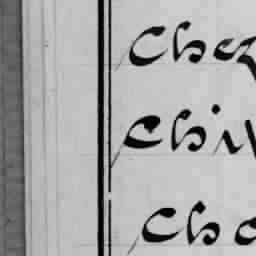 Chez
Chi
Cha